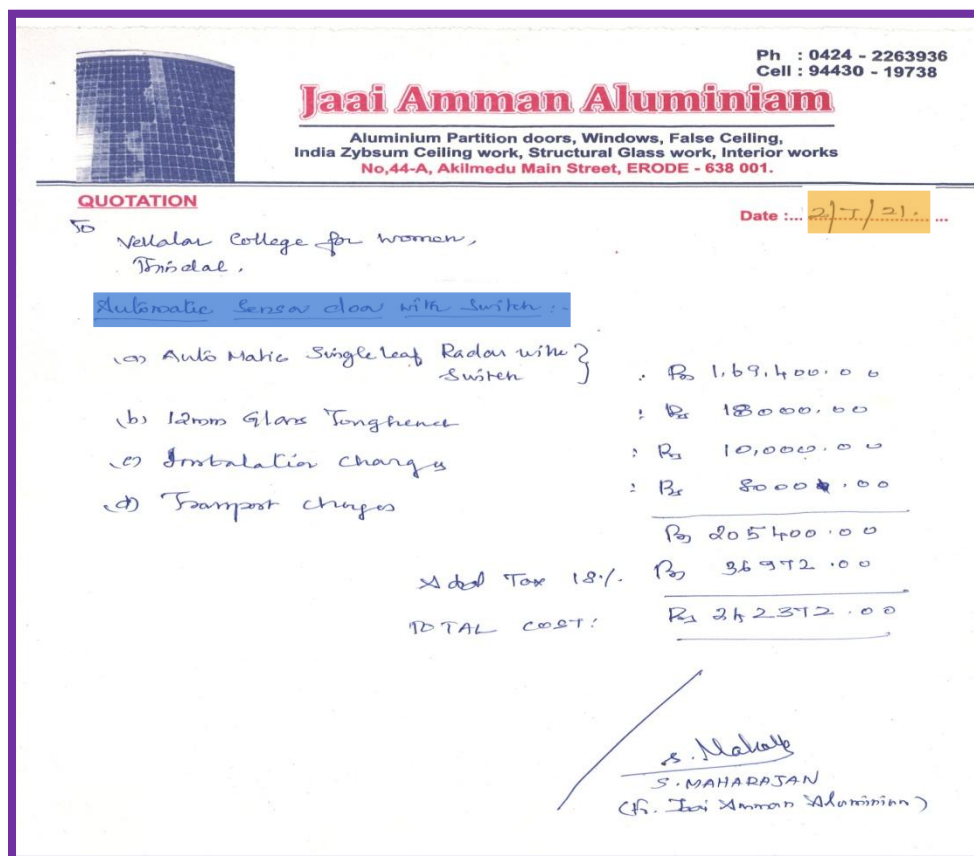 Ph : 0424 - 2263936
Cell : 94430 - 19738
Jaai Amman Aluminiam
Aluminium Partition doors, Windows, False Ceiling,
India Zybsum Ceiling work, Structural Glass work, Interior works
No,44-A, Akilmedu Main Street, ERODE - 638 001.
QUOTATION
Date :... 2/7/21. ...
To
Vellalar College for women,
Thindal,
Automatic Sensor door with Switch :-
(a) Auto Matic Single leaf Radar with }
Switch : Rs 1,69,400.00
(b) 12mm Glass Toughened : Rs 18000.00
(c) Instalation charges : Rs 10,000.00
(d) Transport charges : Rs 8000.00
Rs 205400.00
Add Tax 18% Rs 36972.00
TOTAL COST: Rs 242372.00
S. MAHARAJAN
(Fr. Jaai Amman Aluminian)